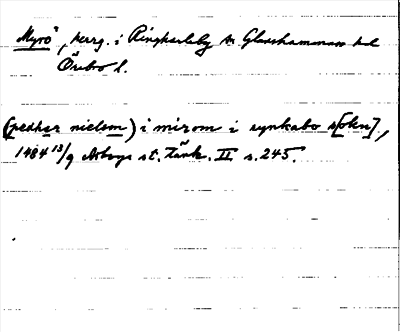 Myrö, herrg. i Ringkarleby sn Glanshammars hd
Örebro l.
(pedher nielsson) i mirom i rynkabo s[okn],
1484 13/9 Arboga st. tänk. II s. 245.